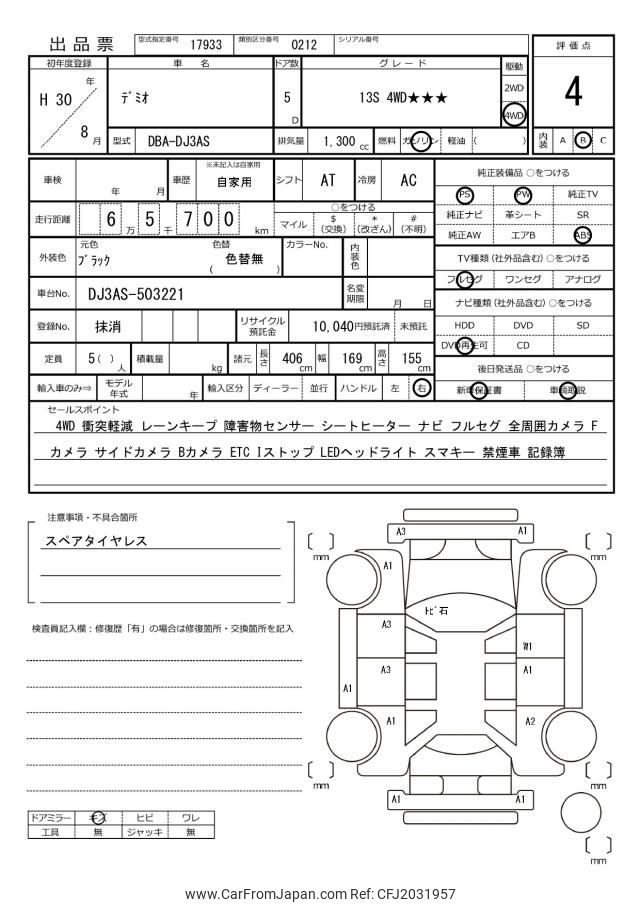 出品票 型式指定番号 17933 類別区分番号 0212 シリアル番号
評価点
4
内装 A B C
初年度登録 車名 ドア数 グレード 駆動
H 30 年 8 月 デミオ 5 D 13S 4WD★★★ 2WD 4WD
型式 DBA-DJ3AS 排気量 1,300 cc 燃料 ガソリン 軽油 ( )
車検 年 月 車歴 ※未記入は自家用 自家用 シフト AT 冷房 AC
走行距離 6 万 5 千 7 0 0 km ○をつける
マイル $(交換) *(改ざん) #(不明)
外装色 元色 ブラック 色替 ( 色替無 ) カラーNo. 内装色
車台No. DJ3AS-503221 名変期限 月 日
登録No. 抹消 リサイクル預託金 10,040円預託済 未預託
定員 5( )人 積載量 kg 諸元 長さ 406cm 幅 169cm 高さ 155cm
輸入車のみ⇒ モデル年式 年 輸入区分 ディーラー 並行 ハンドル 左 右
純正装備品 ○をつける
PS PW 純正TV
純正ナビ 革シート SR
純正AW エアB ABS
TV種類(社外品含む) ○をつける
フルセグ ワンセグ アナログ
ナビ種類(社外品含む) ○をつける
HDD DVD SD
DVD再生可 CD
後日発送品 ○をつける
新車保証書 車輌取説
セールスポイント
4WD 衝突軽減 レーンキープ 障害物センサー シートヒーター ナビ フルセグ 全周囲カメラ F
カメラ サイドカメラ Bカメラ ETC Iストップ LEDヘッドライト スマキー 禁煙車 記録簿
注意事項・不具合箇所
スペアタイヤレス
検査員記入欄:修復歴「有」の場合は修復箇所・交換箇所を記入
ドアミラー キズ ヒビ ワレ
工具 無 ジャッキ 無
A3 A1
mm mm
A1
トビ石
A3
W1
A3 A1
A1
A1 A2
mm mm
A1 A1
mm
www.CarFromJapan.com Ref: CFJ2031957